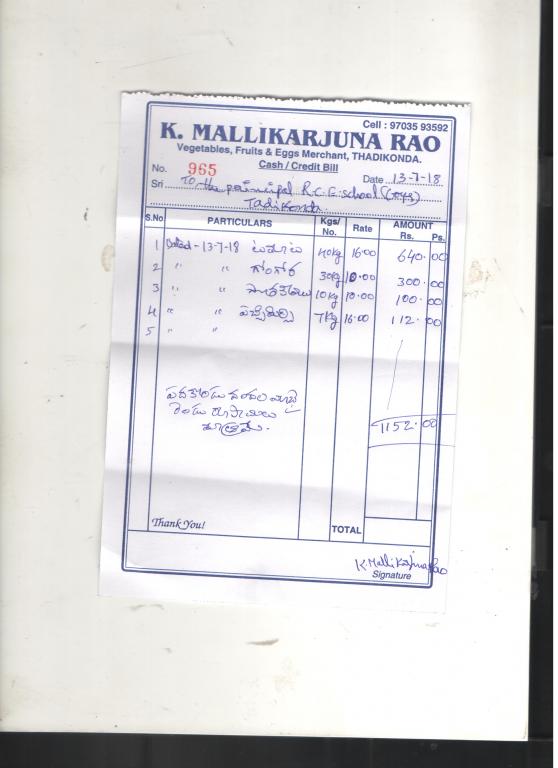 Cell : 97035 93592
K. MALLIKARJUNA RAO
Vegetables, Fruits & Eggs Merchant, THADIKONDA.
Cash / Credit Bill
No. 965 Date 13-7-18
Sri To the principal R.C.E. school
Tadikonda
S.No. PARTICULARS Kgs/No. Rate AMOUNT Rs. Ps.
1 Dated - 13-7-18 టమాట 40kg 16.00 640.00
2 " " గోంగూర 30kg 10.00 300.00
3 " " 10kg 10.00 100.00
4 " " పచ్చిమిర్చి 7kg 16.00 112.00
5 " "
పదకొండు వందల యాభై
రెండు రూపాయలు
మాత్రమే.
1152.00
Thank You!
TOTAL
K. Mallikarjuna Rao
Signature